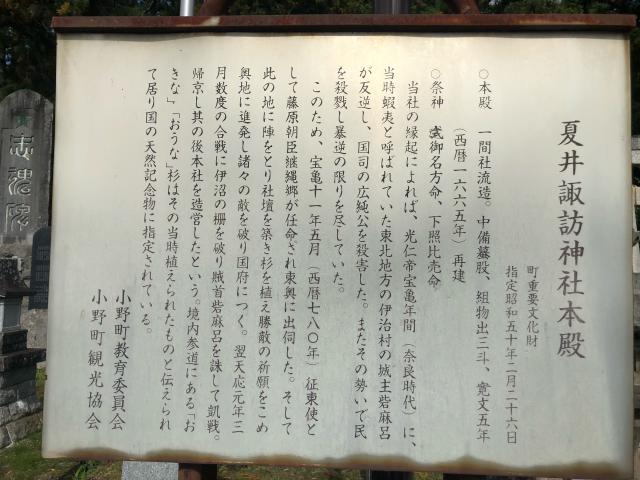 夏井諏訪神社本殿
町重要文化財
指定昭和五十年二月二十六日
○本殿 一間社流造。中備蟇股、組物出三斗、寛文五年
(西暦一六六五年)再建
○祭神 武御名方命、下照比売命
当社の縁起によれば、光仁帝宝亀年間(奈良時代)に、
当時蝦夷と呼ばれていた東北地方の伊治村の城主砦麻呂
が反逆し、国司の広純公を殺害した。またその勢いで民
を殺戮し暴逆の限りを尽していた。
このため、宝亀十一年五月(西暦七八〇年)征東使と
して藤原朝臣継縄郷が任命され東奥に出伺した。そして
此の地に陣をとり社壇を築き杉を植え勝敵の祈願をこめ
奥地に進発し諸々の敵を破り国府につく。翌天応元年三
月数度の合戦に伊沼の柵を破り賊首砦麻呂を誅して凱戦。
帰京し其の後本社を造営したという。境内参道にある「お
きな」「おうな」杉はその当時植えられたものと伝えられ
て居り国の天然記念物に指定されている。
小野町教育委員会
小野町観光協会